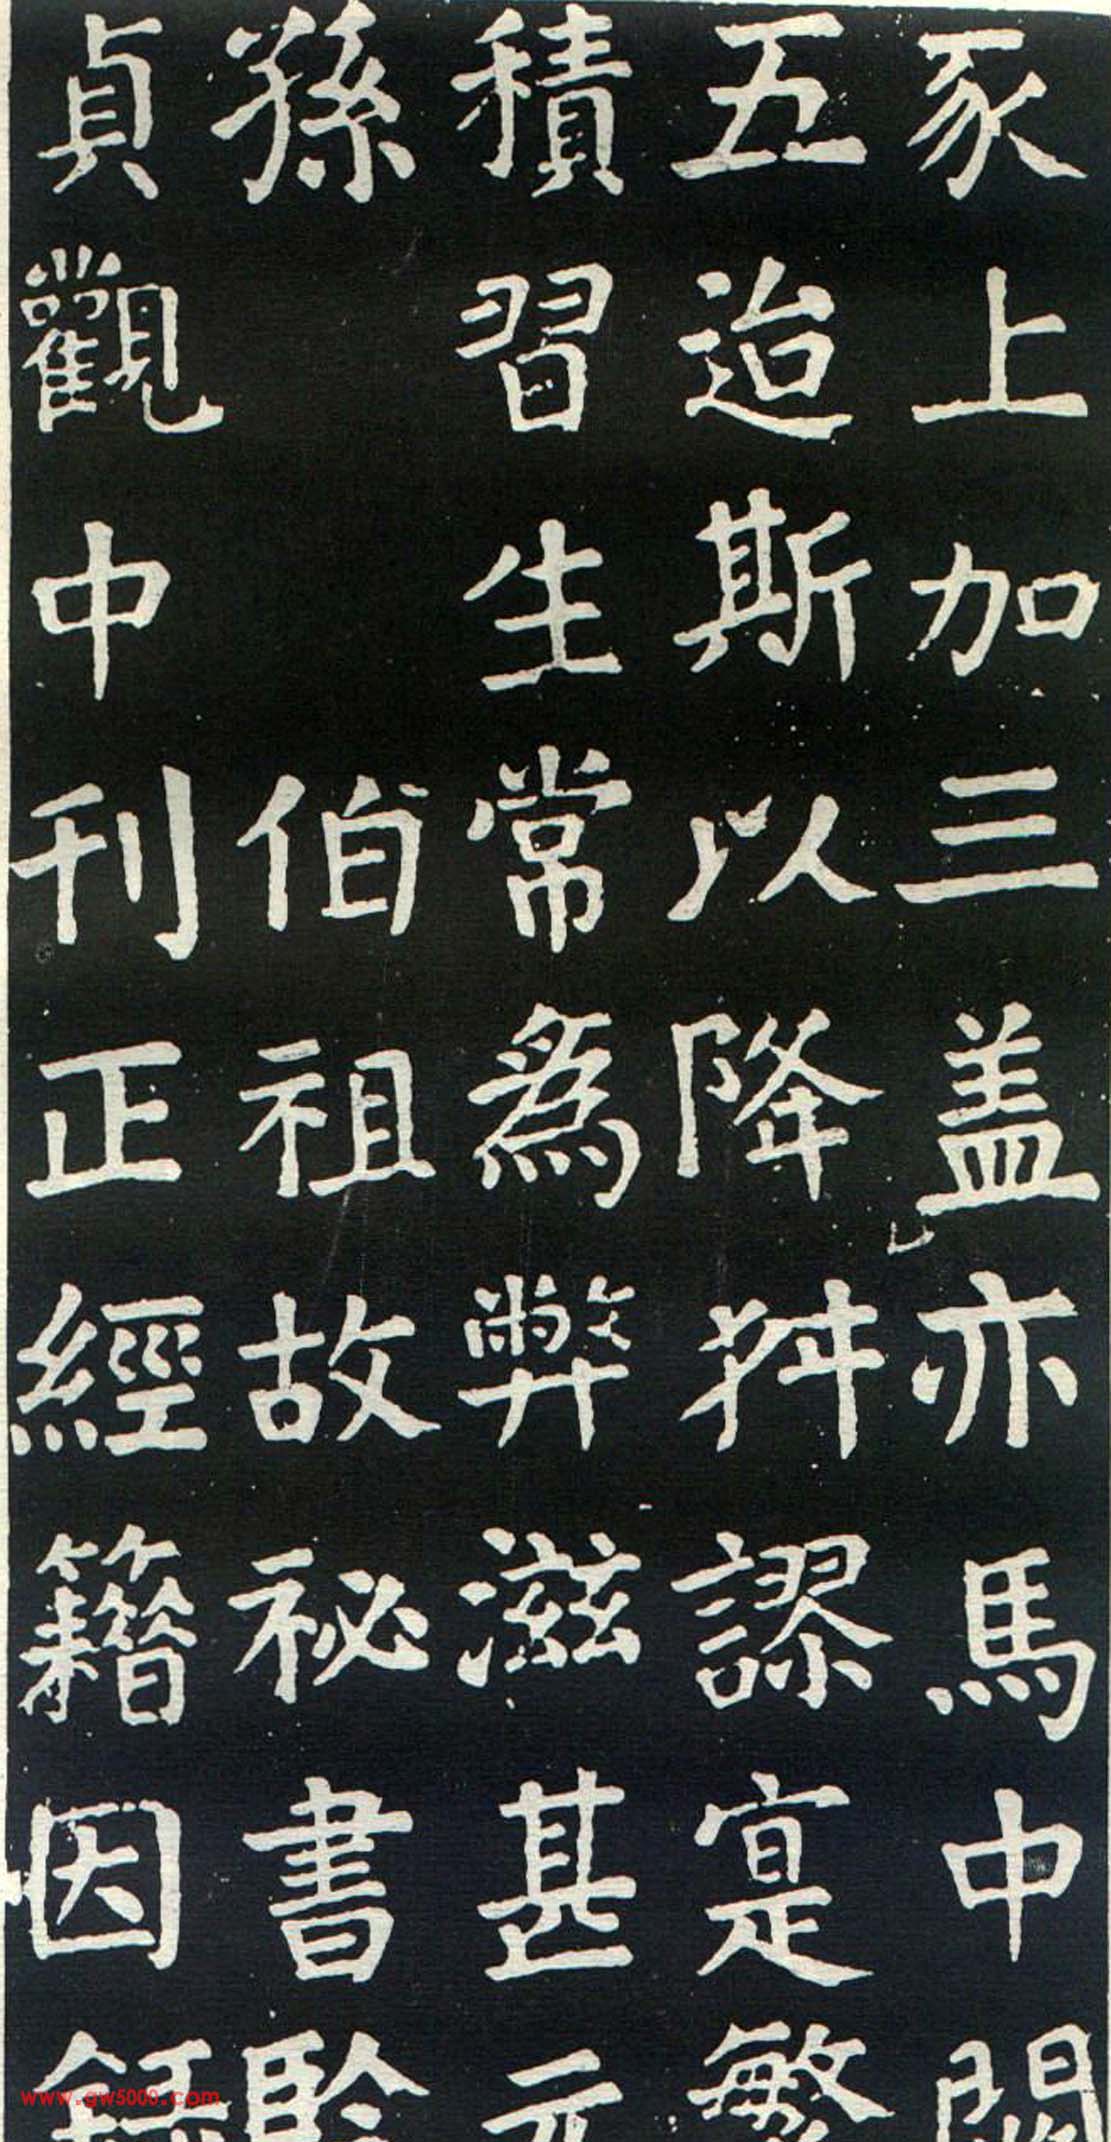 豕上加三盖亦馬中闕
五迨斯以降舛謬寔繁
積習生常爲弊滋甚元
孫 伯祖故祕書監
貞觀中刊正經籍因録
www.gw5000.com